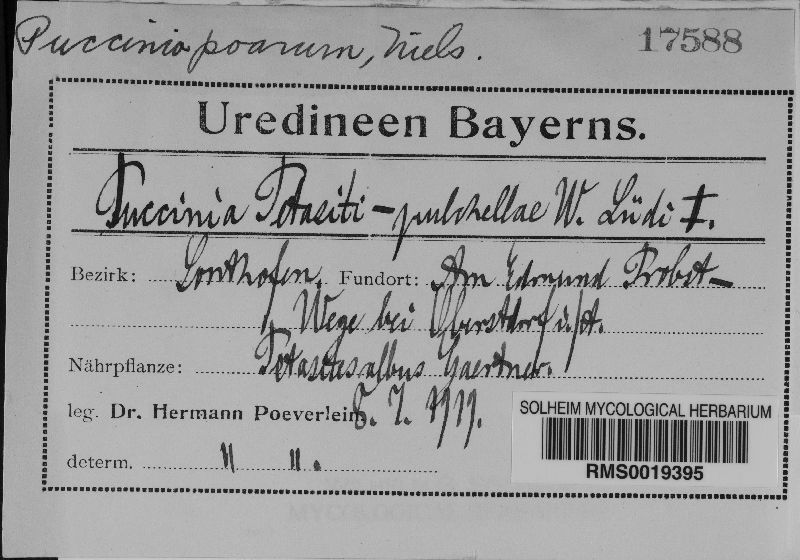 Puccinia poarum, Niels.
17588
Uredineen Bayerns.
Puccinia Petasiti-pulchellae W. Lüdi I.
Bezirk: Sonthofen. Fundort: Am Edmund Probst-
Wege bei Oberstdorf i./A.
Nährpflanze: Petasites albus Gaertner.
leg. Dr. Hermann Poeverlein 8. 7. 1919.
determ. " ".
SOLHEIM MYCOLOGICAL HERBARIUM
RMS0019395